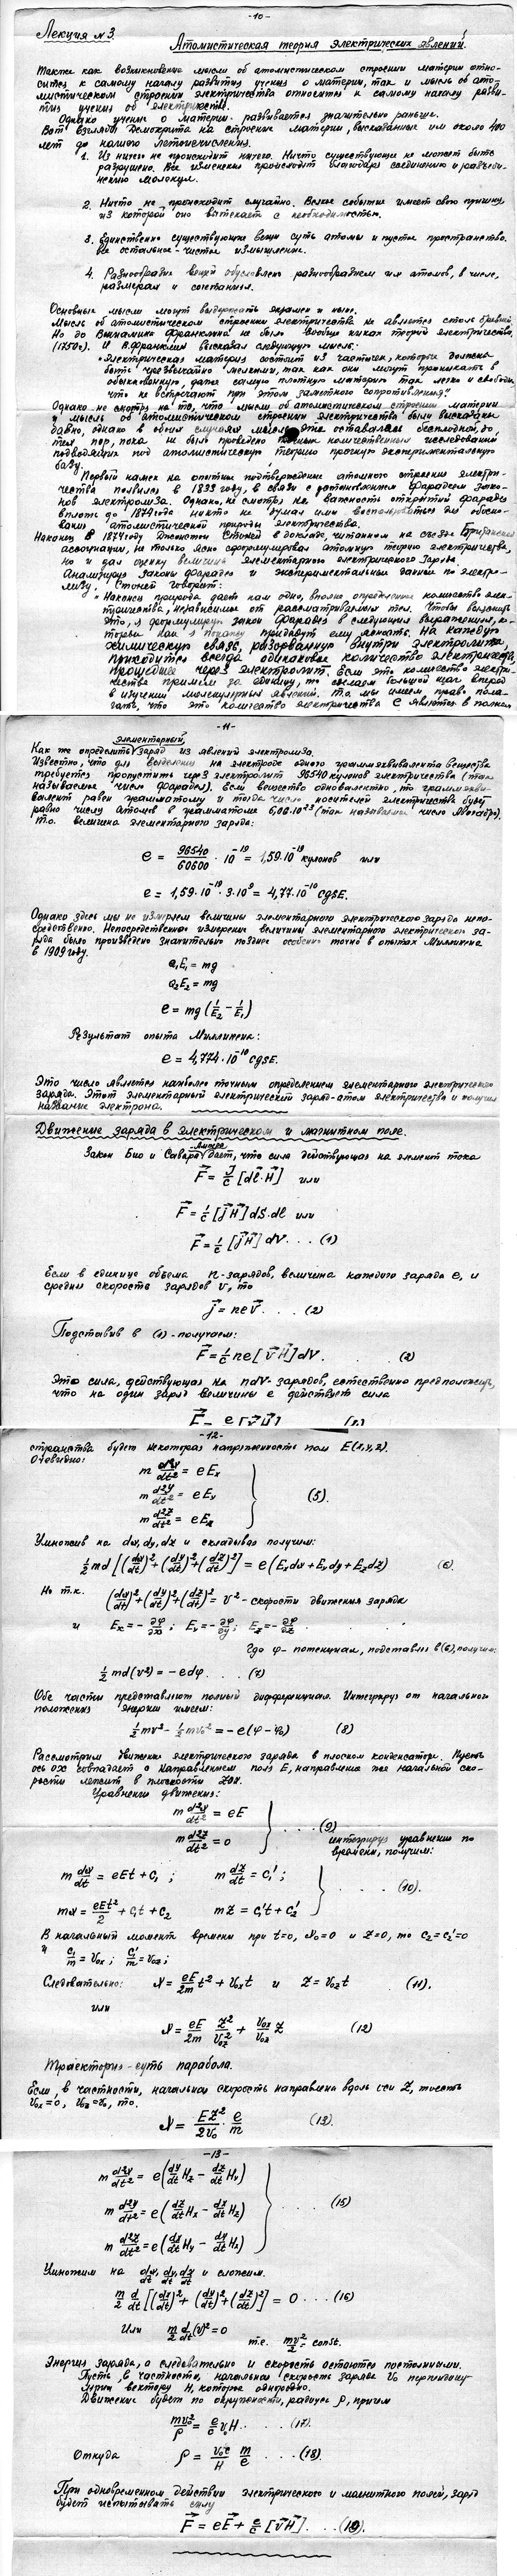 -10-
Лекция №3.
Атомистическая теория электрических явлений.
Также как возникновение мысли об атомистическом строении материи отно-
сится к самому началу развития учения о материи, так и мысль об ато-
мистическом строении электричества относится к самому началу разви-
тия учения об электричестве.
Однако учение о материи развивается значительно раньше.
Вот взгляды Демокрита на строение материи, высказанные им около 400
лет до нашего летоисчисления.
1. Из ничего не происходит ничего. Ничто существующее не может быть
разрушено. Все изменения происходит благодаря соединению и разъеди-
нению молекул.
2. Ничто не происходит случайно. Всякое событие имеет свою причину
из которой оно вытекает с необходимостью.
3. Единственно существующие вещи суть атомы и пустое пространство.
все остальное - чистое измышление.
4. Разнообразие вещей обусловлено разнообразием им атомов, в числе,
размерах и сочетании.
Основные мысли могут выдержать экзамен и ныне.
Мысль об атомистическом строении электричества не является столь древней
Но до Вениамина Франклина не было вообще никаких теорий электричества
(1750г). И В.Франклин высказал следующую мысль:
"Электрическая материя состоит из частичек, которые должны
быть чрезвычайно мелкими, так как они могут проникать в
обыкновенную, даже самую плотную материю так легко и свободно
что не встречают при этом заметного сопротивления."
Однако не смотря на то, что мысль об атомистическом строении материи
и мысль об атомистическом строении электричества были высказаны
давно, однако в обоих случаях мысли эти оставались бесплодной, до
тех пор, пока не было проведено точных количественных исследований
подводящих под атомистическую теорию прочную экспериментальную
базу.
Первый намек на опытное подтверждение атомного строения электри-
чества появился в 1833 году, в связи с установлением Фарадеем зако-
нов электролиза. Однако, не смотря на важность открытий Фарадея
вплоть до 1874 года никто не думал ими воспользоваться для обосно-
вания атомистической природы электричества.
Наконец в 1874 году Джонстон Стоней в докладе, читанном на съезде Британской
ассоциации, не только ясно сформулировал атомную теорию электричества,
но и дал оценку величины элементарного электрического заряда.
Анализируя законы Фарадея и экспериментальные данные по электро-
лизу, Стоней говорит:
"Наконец природа дает нам одно, вполне определенное количество элек-
тричества, независимое от рассматриваемых тел. Чтобы выяснить
это, я формулирую закон Фарадея в следующих выражениях, ко-
торые как я покажу придадут ему ясность. На каждую
химическую связь, разорванную внутри электролита,
приходится всегда одинаковое количество электричества,
прошедшее через электролит. Если это количество электри-
чества примем за единицу, то сделаем большой шаг вперед
в изучении молекулярных явлений. Т.о. мы имеем право пола-
гать, что это количество электричества e является в полном
-11-
элементарный
Как же определить заряд из явлений электролиза.
Известно, что для выделения на электроде одного граммэквивалента вещества
требуется пропустить через электролит 96540 кулонов электричества (так
называемое число Фарадея). Если вещество одновалентно, то граммэкви-
валент равен грамматому и тогда число носителей электричества будет
равно числу атомов в грамматоме 6,06·10²³ (так называемое число Авогадро).
Т.о. величина элементарного заряда:
e = 96540/60600 · 10⁻¹⁹ = 1,59·10⁻¹⁹ кулонов или
e = 1,59·10⁻¹⁹·3·10⁹ = 4,77·10⁻¹⁰ cgsE.
Однако здесь мы не измеряем величины элементарного электрического заряда непо-
средственно. Непосредственное измерение величины элементарного электрического за-
ряда было произведено значительно позднее особенно точно в опытах Милликена
в 1909 году.
e₁E₁ = mg
e₂E₂ = mg
e = mg (1/E₂ - 1/E₁)
Результат опыта Милликена:
e = 4,774·10⁻¹⁰ cgsE.
Это число является наиболее точным определением элементарного электрического
заряда. Этот элементарный электрический заряд-атом электричества и получил
название электрона.
Движение заряда в электрическом и магнитном поле.
Ампера
Закон Био и Савара дает, что сила действующая на элемент тока
F = J/c [dl·H] или
F = 1/c [jH] dS·dl или
F = 1/c [jH] dV . . . (1)
Если в единице объема n-зарядов, величина каждого заряда e, и
средняя скорость зарядов v, то
j = nev . . . (2)
Подставив в (1) - получаем:
F = 1/c ne [vH] dV. . (2)
Это сила, действующая на ndV- зарядов, естественно предположить,
что на один заряд величины e действует сила
-12-
странства будет некоторая напряженность поля E(x,y,z).
Очевидно:
m d²x/dt² = eEx
m d²y/dt² = eEy
m d²z/dt² = eEz
(5).
Умножив на dx, dy, dz и складывая получим:
½ md [(dx/dt)² + (dy/dt)² + (dz/dt)²] = e (Exdx + Eydy + Ezdz) (6).
Но т.к. (dx/dt)² + (dy/dt)² + (dz/dt)² = v² - скорости движения заряда
и Ex = - ∂φ/∂x ; Ey = - ∂φ/∂y ; Ez = - ∂φ/∂z
где φ - потенциал, подставляя в (6), получим:
½ md(v²) = -edφ . . . (7)
Обе части представляют полный дифференциал. Интегрируя от начального
положения энергии имеем:
½ mv² - ½ mv₀² = -e (φ - φ₀) (8)
Рассмотрим движение электрического заряда в плоском конденсаторе. Пусть
ось ox совпадает с направлением поля E, направление же начальной ско-
рости лежит в плоскости ZOX.
Уравнения движения:
m d²x/dt² = eE
m d²z/dt² = 0
. . . . (9)
интегрируя уравнения по
времени, получим:
m dx/dt = eEt + C₁ ; m dz/dt = C₁' ;
mx = eEt²/2 + C₁t + C₂ mz = C₁'t + C₂'
. . . . (10).
В начальный момент времени при t=0, x₀=0 и z=0, то C₂=C₂'=0
и C₁/m = v₀x ; C₁'/m = v₀z ;
Следовательно: x = eE/2m t² + v₀x t и z = v₀z t (11).
или
x = eE/2m z²/v₀z² + v₀x/v₀z z (12)
Траектория - суть парабола.
Если, в частности, начальная скорость направлена вдоль оси z, то есть
v₀x = 0, v₀z = v₀, то.
x = Ez²/2v₀ · e/m (13).
-13-
m d²x/dt² = e (dy/dt Hz - dz/dt Hy)
m d²y/dt² = e (dz/dt Hx - dx/dt Hz)
m d²z/dt² = e (dx/dt Hy - dy/dt Hx)
. . . . (15)
Умножим на dx/dt, dy/dt, dz/dt и сложим.
m/2 d/dt [(dx/dt)² + (dy/dt)² + (dz/dt)²] = 0 . . . (16)
Или m/2 d/dt (v)² = 0
т.е. mv²/2 = const.
Энергия заряда, а следовательно и скорость остаются постоянными.
Пусть, в частности, начальная скорость заряда v₀ перпендику-
лярна вектору H, которое однородно.
Движение будет по окружности, радиуса ρ, причем
mv₀²/ρ = e/c v₀H . . . (17).
Откуда ρ = v₀c/H m/e . . . (18).
При одновременном действии электрического и магнитного полей, заряд
будет испытывать силу
F = eE + e/c [vH] . . . (19).